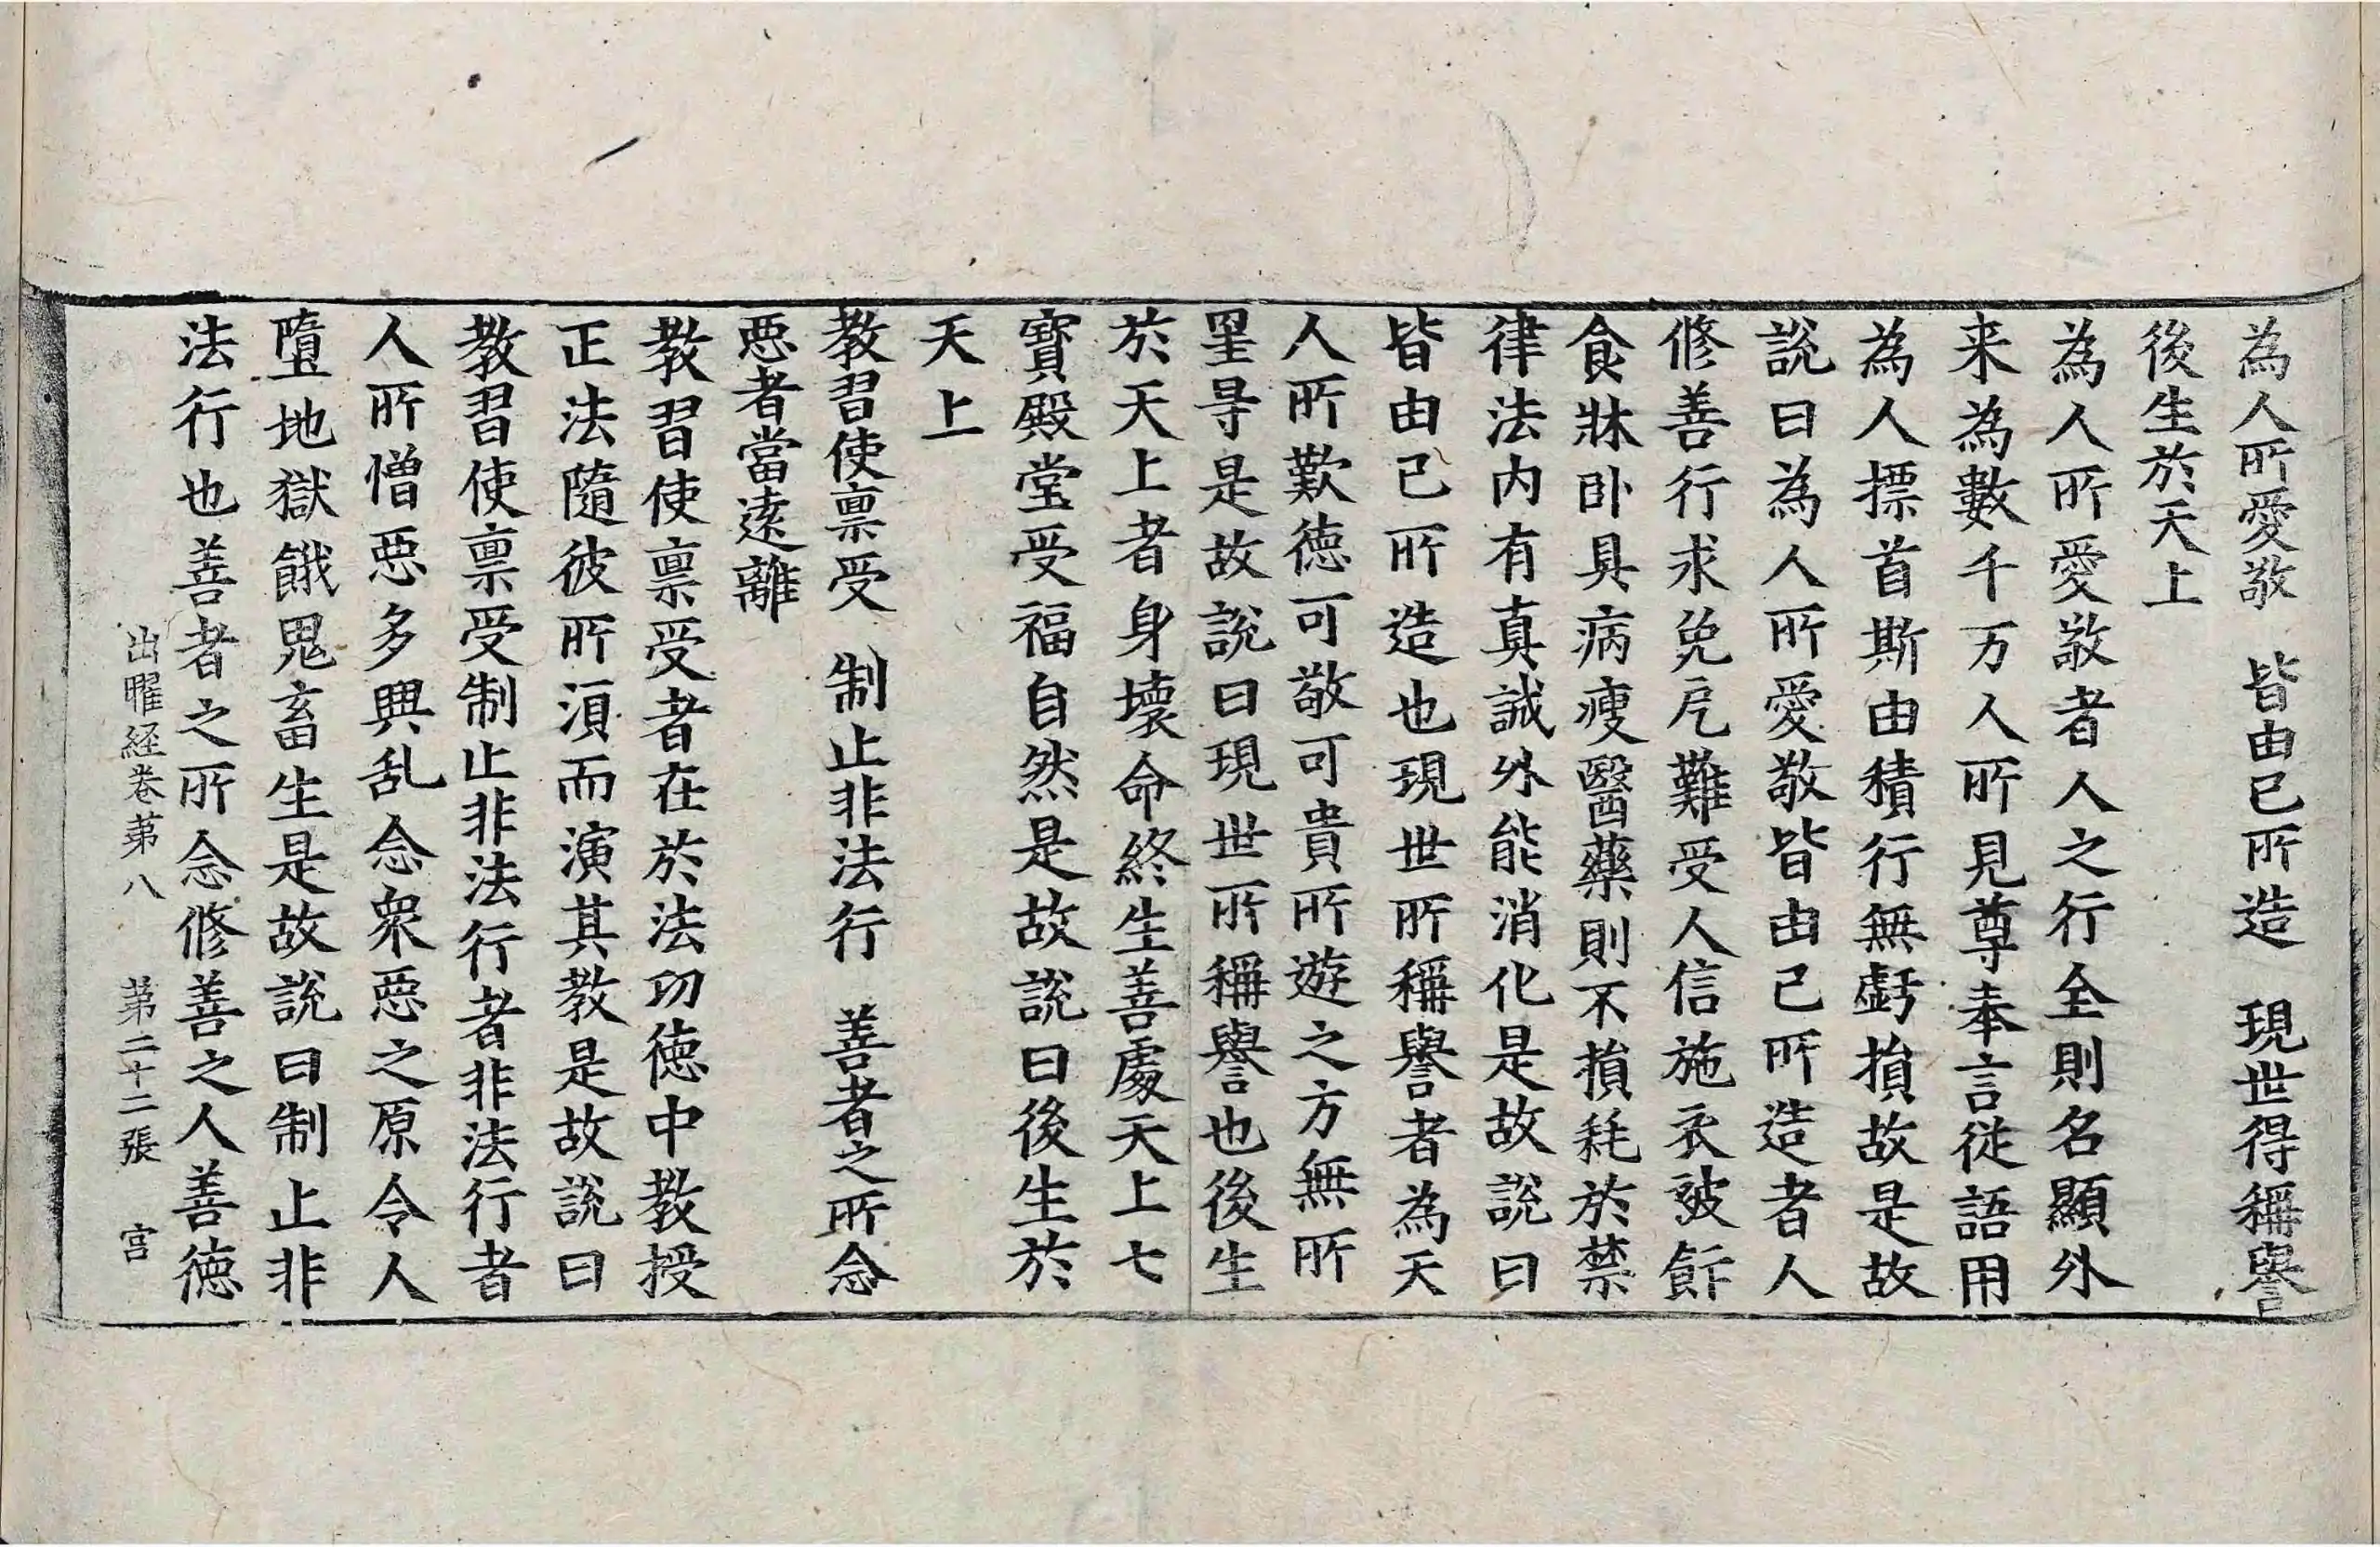 為人所愛敬　皆由已所造　現世得稱譽
後生於天上
為人所愛敬者人之行全則名顯外
来為數千万人所見尊奉言従語用
為人摽首斯由積行無虧損故是故
說曰為人所愛敬皆由已所造者人
修善行求免厄難受人信施衣被飾
食牀卧具病瘦醫藥則不損耗於禁
律法内有真誠外能消化是故說曰
皆由已所造也現世所稱譽者為天
人所歎徳可敬可貴所遊之方無所
罣㝵是故說曰現世所稱譽也後生
於天上者身壞命終生善處天上七
寶殿堂受福自然是故說曰後生於
天上
教習使禀受　制止非法行　善者之所念
惡者當遠離
教習使禀受者在於法功徳中教授
正法隨彼所湏而演其教是故說曰
教習使禀受制止非法行者非法行者
人所憎惡多興乱念衆惡之原令人
墮地獄餓鬼畜生是故說曰制止非
法行也善者之所念修善之人善徳
出曜経卷苐八　苐二十二張　宫